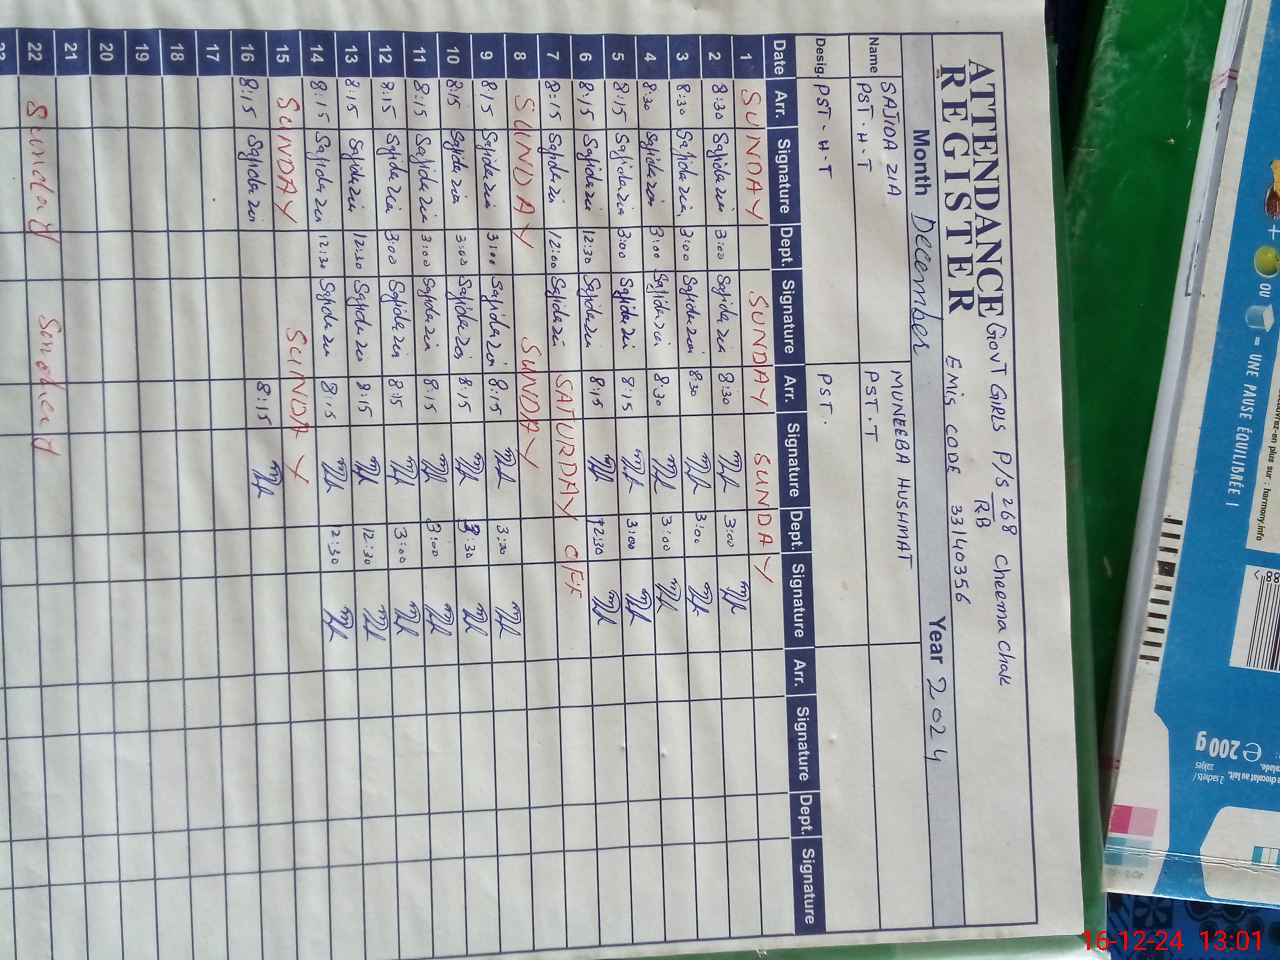 ATTENDANCE REGISTER
GOVT GIRLS P/S 268 RB Cheema Chak
EMIS CODE 33140356
Month December Year 2024
Name SAJIDA ZIA MUNEEBA HUSHMAT
PST.H.T PST.T
Desig. PST.H.T PST.
Date Arr. Signature Dept. Signature Arr. Signature Dept. Signature Arr. Signature Dept. Signature
1 SUNDAY SUNDAY SUNDAY
2 8:30 Sajida zia 3:00 Sajida zia 8:30 3:00
3 8:30 Sajida zia 3:00 Sajida zia 8:30 3:00
4 8:30 Sajida zia 3:00 Sajida zia 8:30 3:00
5 8:15 Sajida zia 3:00 Sajida zia 8:15 3:00
6 8:15 Sajida zia 12:30 Sajida zia 8:15 12:30
7 8:15 Sajida zia 12:00 Sajida zia SATURDAY OFF
8 SUNDAY SUNDAY
9 8:15 Sajida zia 3:00 Sajida zia 8:15 3:30
10 8:15 Sajida zia 3:00 Sajida zia 8:15 3:30
11 8:15 Sajida zia 3:00 Sajida zia 8:15 3:00
12 8:15 Sajida zia 3:00 Sajida zia 8:15 3:00
13 8:15 Sajida zia 12:30 Sajida zia 8:15 12:30
14 8:15 Sajida zia 12:30 Sajida zia 8:15 2:30
15 SUNDAY SUNDAY
16 8:15 Sajida zia 8:15
17
18
19
20
21
22 Sunday
+ OU = UNE PAUSE ÉQUILIBRÉE !
en plus sur : harmony.info
℮ 200g
2 sachets /
16-12-24 13:01